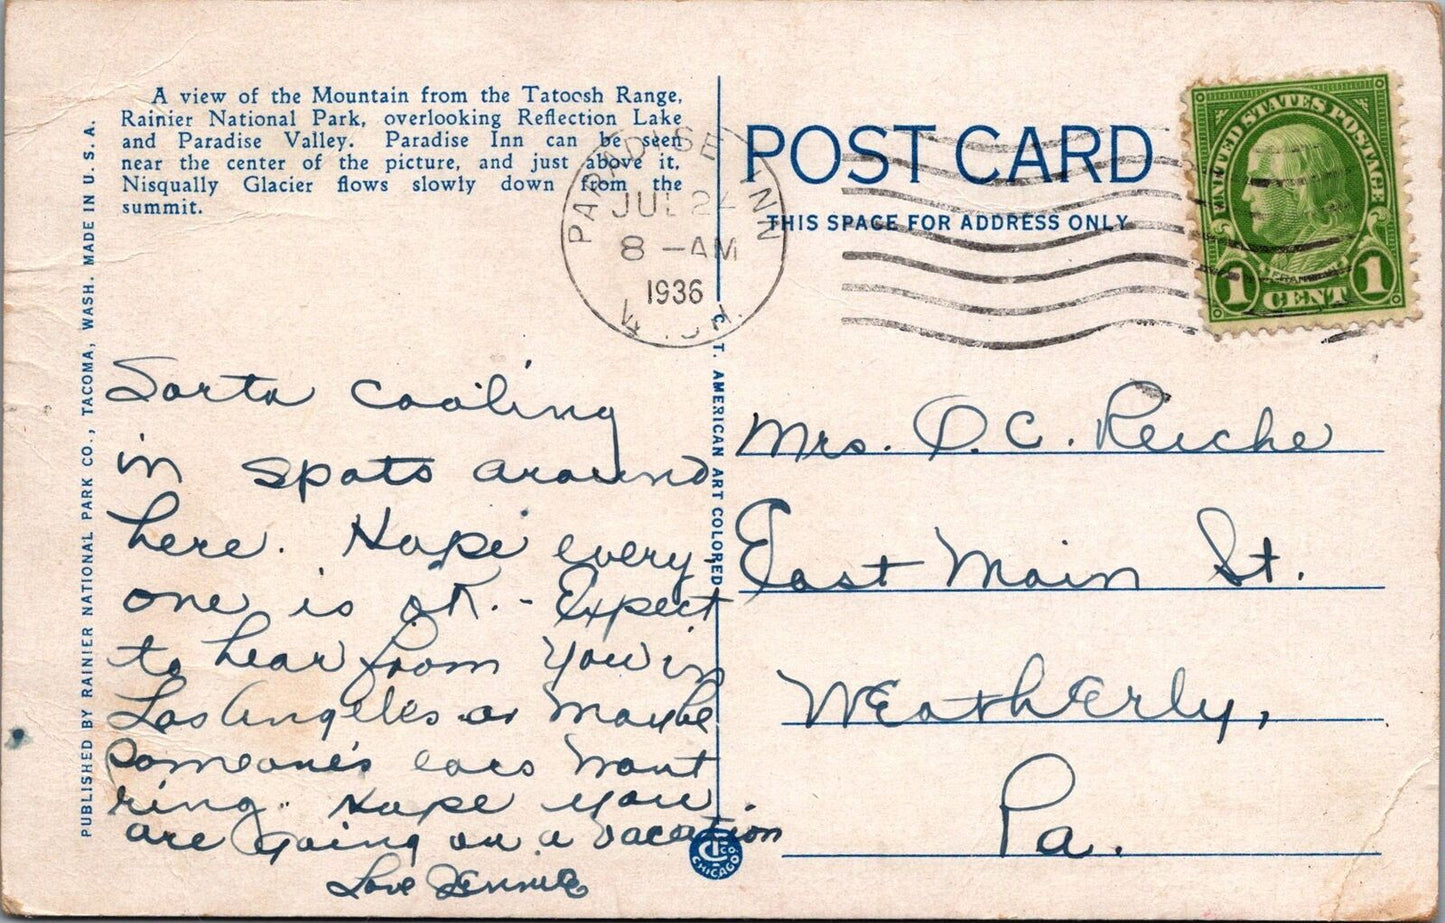 A view of the Mountain from the Tatoosh Range,
Rainier National Park, overlooking Reflection Lake
and Paradise Valley. Paradise Inn can be seen
near the center of the picture, and just above it.
Nisqually Glacier flows slowly down from the
summit.
PUBLISHED BY RAINIER NATIONAL PARK CO., TACOMA, WASH. MADE IN U. S. A.
PARADISE INN
JUL 24
8 - AM
1936
WASH.
POST CARD
THIS SPACE FOR ADDRESS ONLY
UNITED STATES POSTAGE
FRANKLIN
1 CENT 1
C. T. AMERICAN ART COLORED
Sorta cooling
in spots around
here. Hope every
one is OK. - Expect
to hear from you in
Los Angeles or maybe
someone's ears wont
ring. Hope you
are going on a vacation
Love Jennie
Mrs. O. C. Reiche
East Main St.
WEathErly,
Pa.
CT CO.
CHICAGO